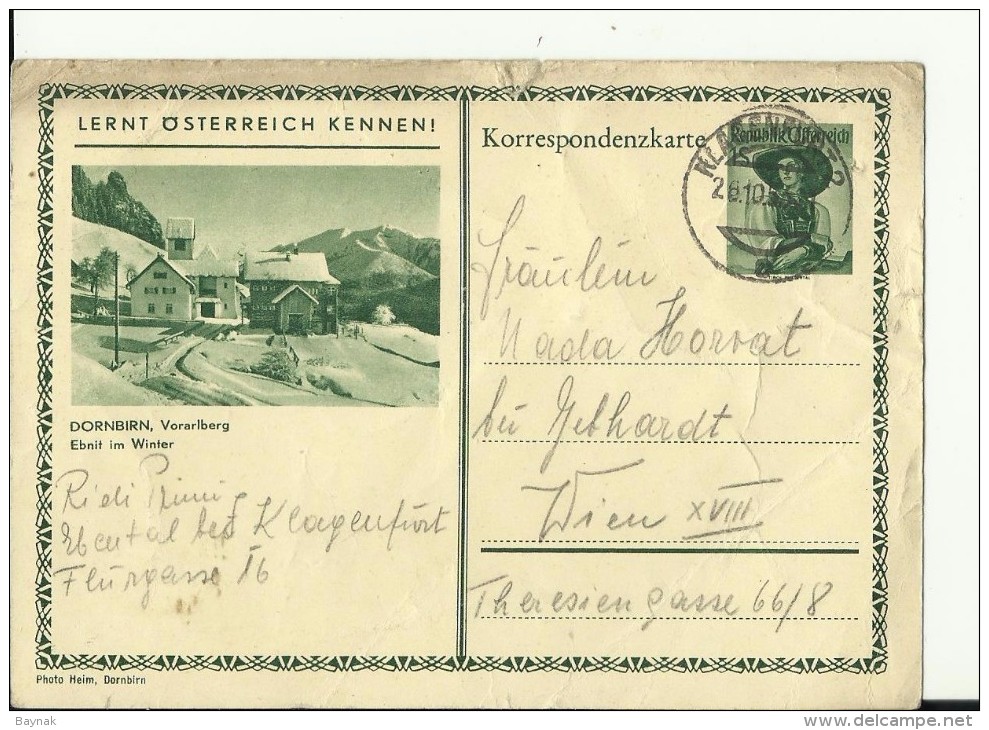 LERNT ÖSTERREICH KENNEN!
DORNBIRN, Vorarlberg
Ebnit im Winter
Riedi Primi
Ebental bei Klagenfurt
Flurgasse 16
Photo Heim, Dornbirn
Korrespondenzkarte
Republik Österreich
KLAGENFURT 2
Fräulein
Nada Horvat
bei Gebhardt
Wien XVIII
Theresiengasse 66/8
Baynak
www.delcampe.net